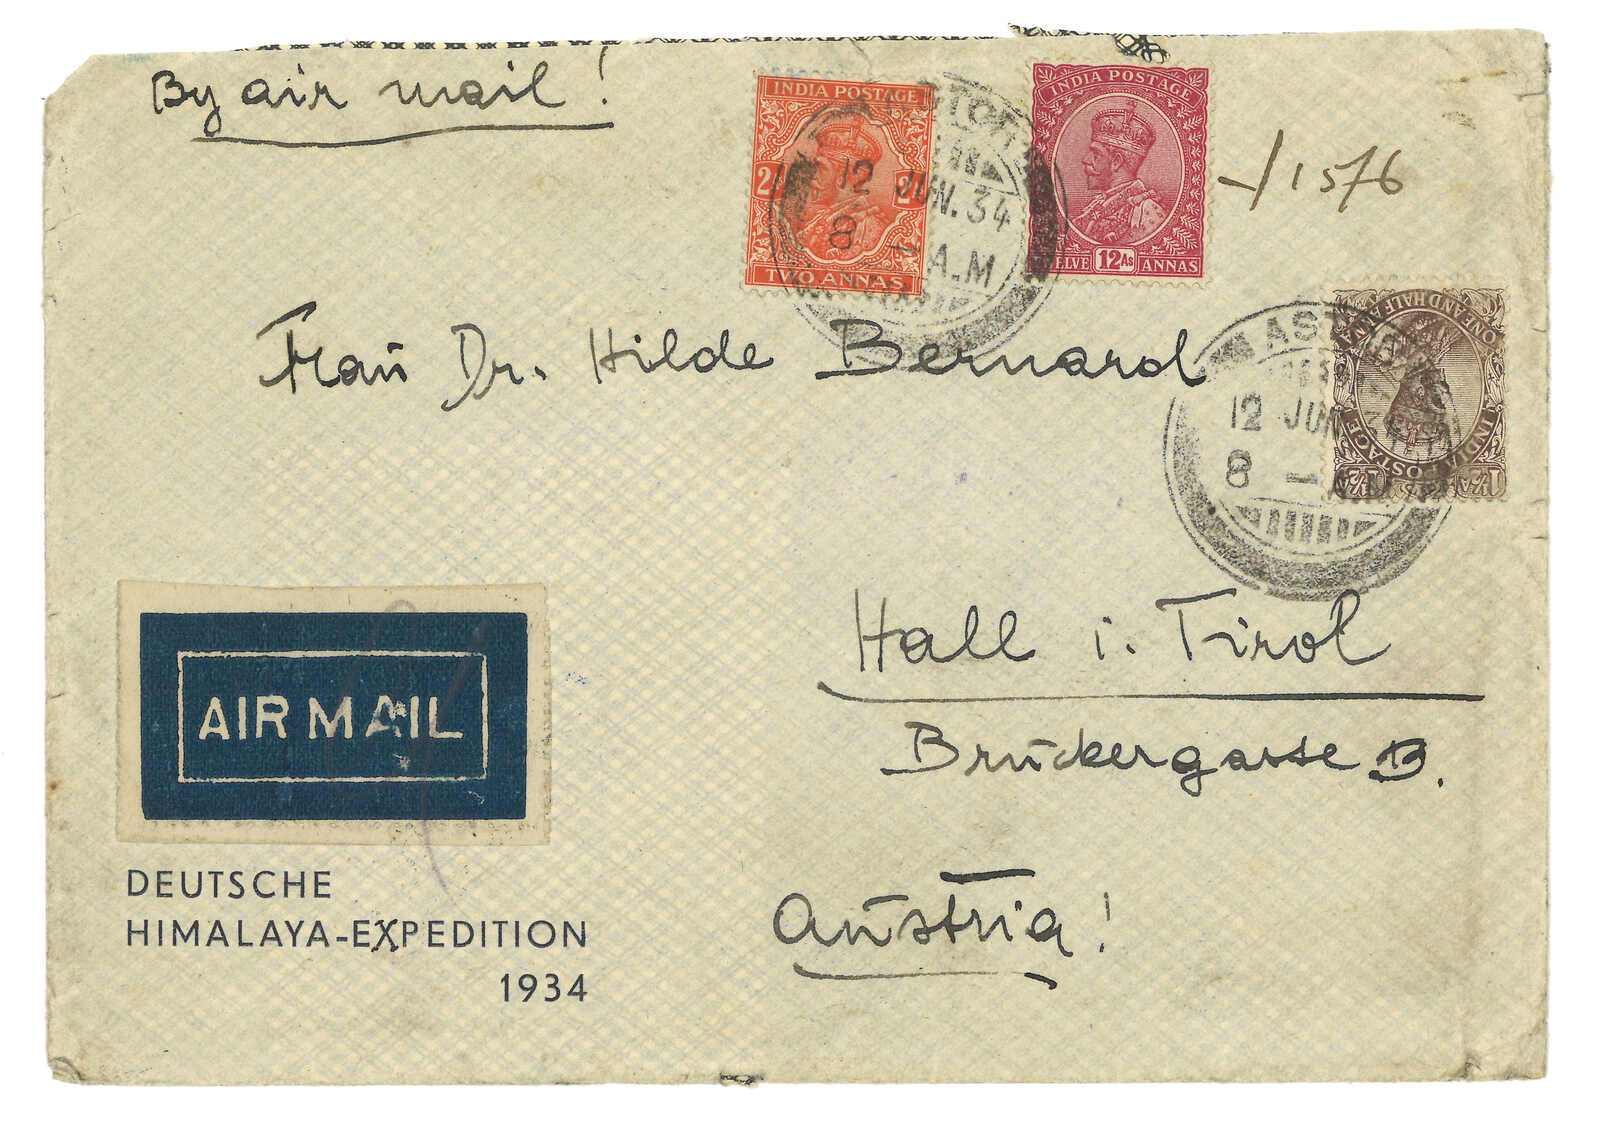 By air mail!
INDIA POSTAGE
2A 2A
TWO ANNAS
INDIA POSTAGE
12As ANNAS
-/15/6
12 JUN. 34
8 - A.M
Frau Dr. Hilde Bernard
INDIA POSTAGE
ONE AND HALF ANNA
ASTOR
12 JUN. 34
8 - A.M
Hall i. Tirol
Bruckergasse 13.
Austria!
AIR MAIL
DEUTSCHE
HIMALAYA-EXPEDITION
1934